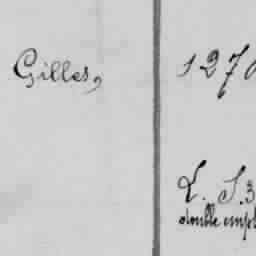 Gilles, 127
L. S. 3
double empl